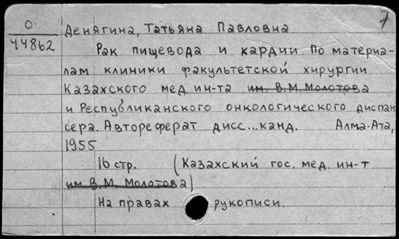 0.
44862
7
Денягина, Татьяна Павловна
Рак пищевода и кардии по материа-
лам клиники факультетской хирургии
Казахского мед. ин-та им. В.М. Молотова
и Республиканского онкологического диспан
сера. Автореферат дисс...канд. Алма-Ата,
1955
16 стр. (Казахский гос. мед. ин-т
им. В.М. Молотова)
На правах рукописи.